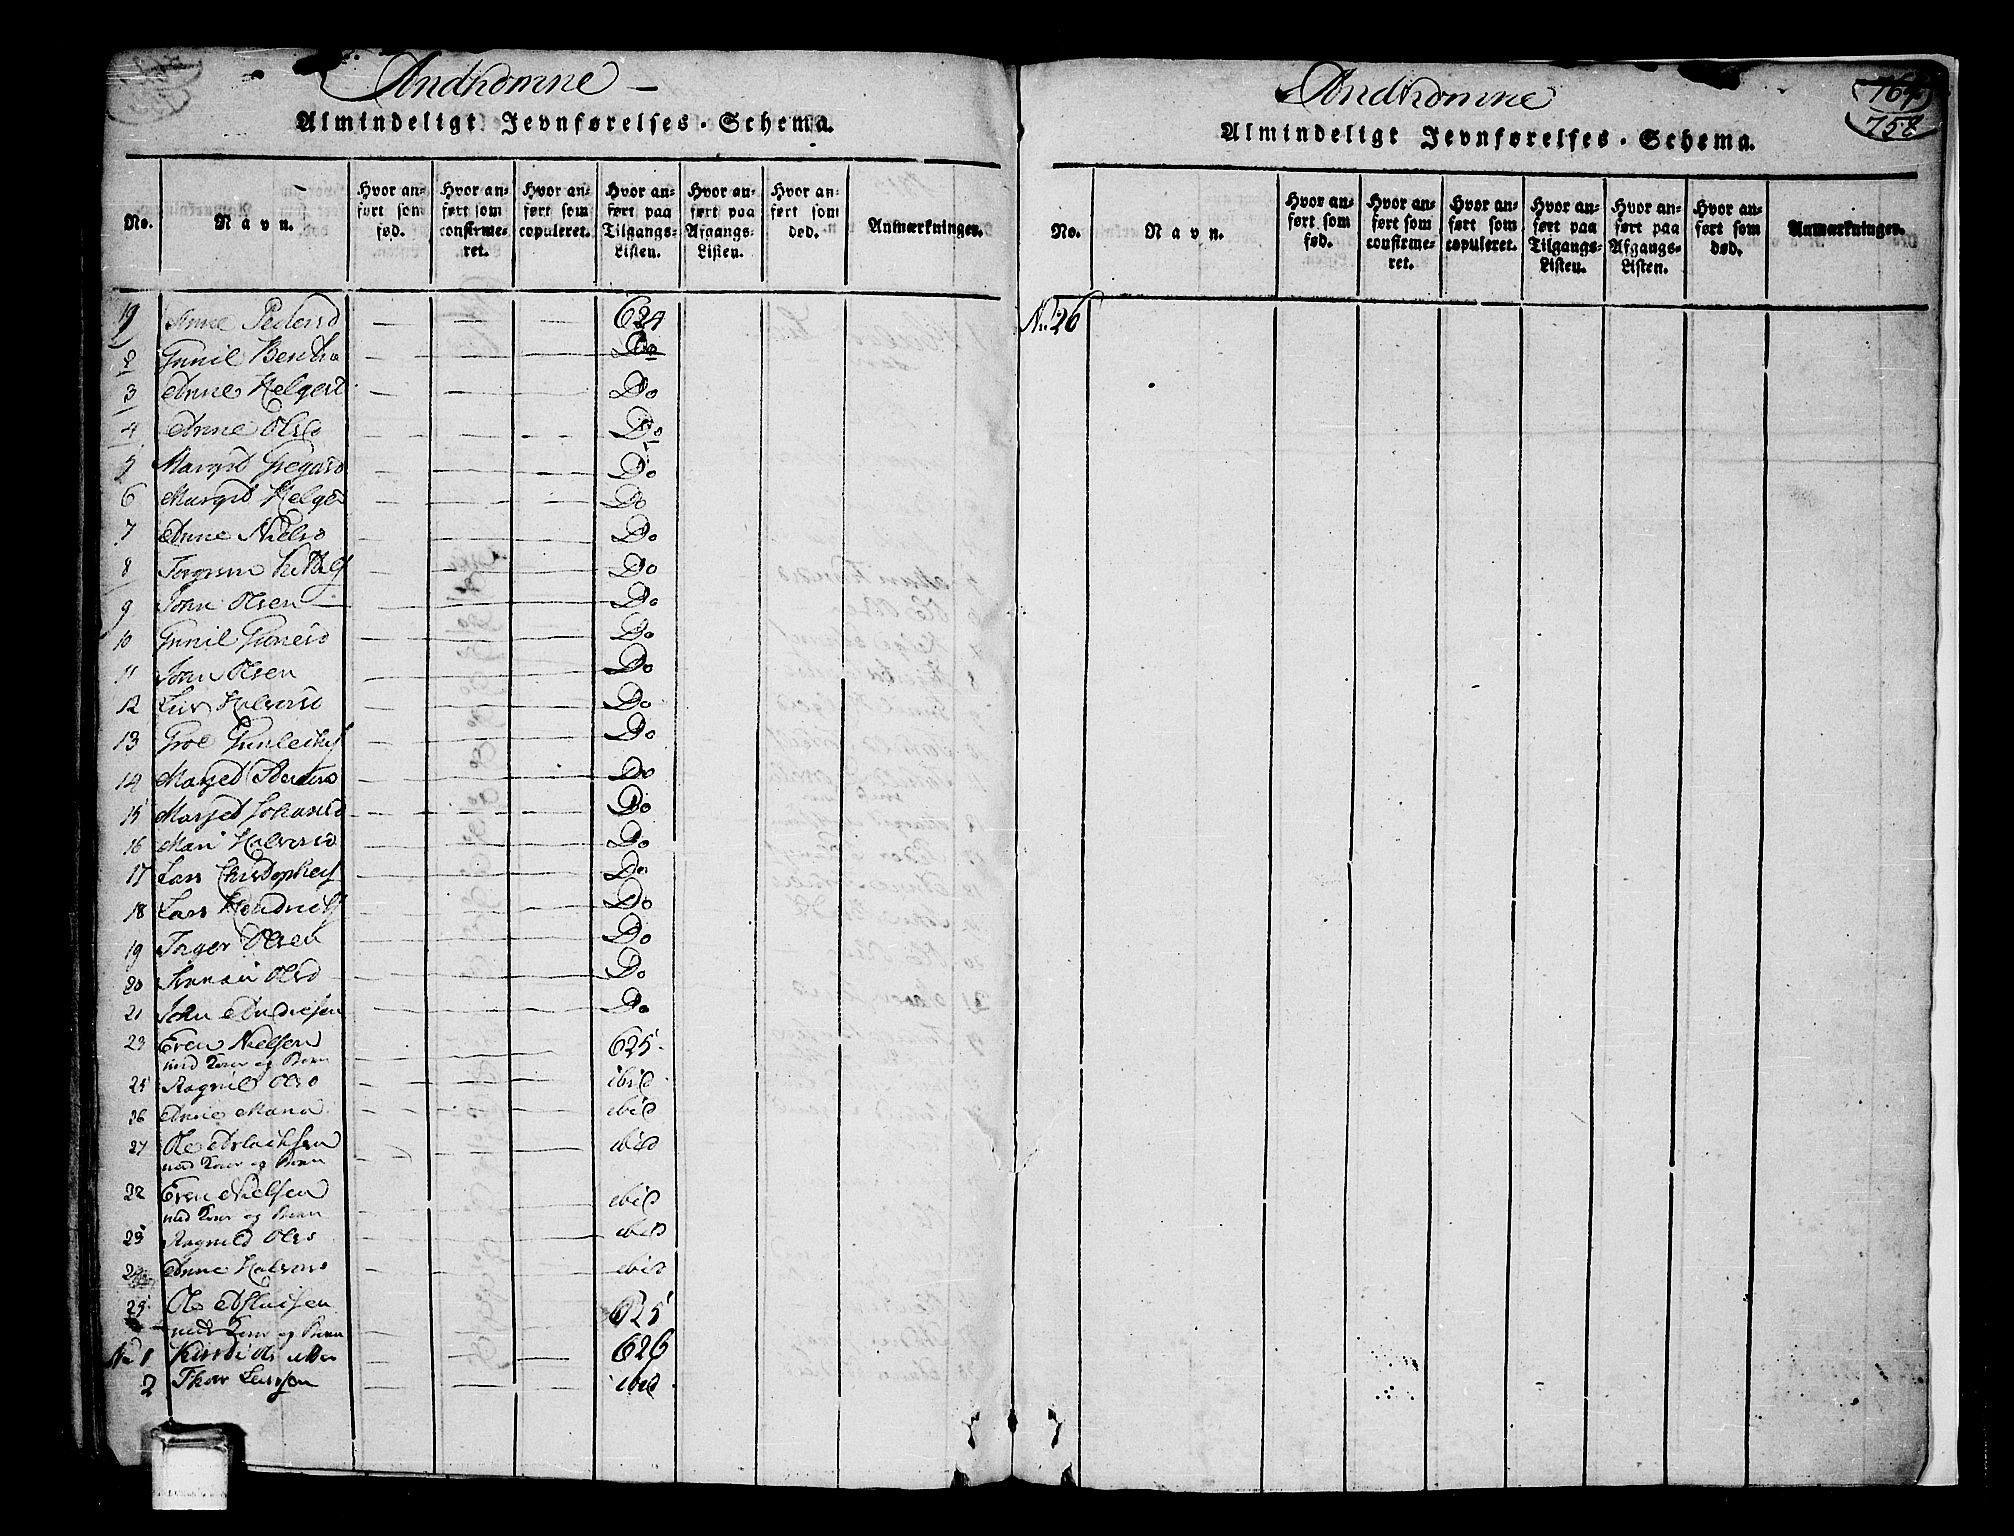 Andkomne
Almindeligt Jevnførelses-Schema.
No.
Navn.
Hvor anført som fød.
Hvor anført som confirmeret.
Hvor anført som copuleret.
Hvor anført paa Tilgangs-Listen.
Hvor anført paa Afgangs-Listen.
Hvor anført som død.
Anmærkninger.
Anne Pedersd 624
2 Gunil Bentho Do
3 Anne Helgesd Do
4 Anne Olsd Do
5 Margit Do
6 Margit Helges Do
7 Anne Nielsd Do
8 Do
9 John Olsen Do
10 Gunil Do
11 John Olsen Do
12 Halvorsd Do
13 Groe Do
14 Do
15 Johansd Do
16 Mari Halvorsd Do
17 Lars Christophers Do
18 Lars Do
19 Inger Olsen Do
20 Olsd Do
21 John Andresen Do
23 Even Nielsen 625
med Kone og Børn
25 Ragnild Olsd ibid
26 Anne Maria ibid
27 Ole Aslachsen ibid
med Kone og Børn
22 Even Nielsen ibid
med Kone og Børn
23 Ragnild Olsd ibid
Anne Halvorsd ibid
25 Ole Aslacsen 625
med Kone og Børn
No 1 626
2 Thor Larssen ibid
Andkomne
764
758
Almindeligt Jevnførelses-Schema.
No.
Navn.
Hvor anført som fød.
Hvor anført som confirmeret.
Hvor anført som copuleret.
Hvor anført paa Tilgangs-Listen.
Hvor anført paa Afgangs-Listen.
Hvor anført som død.
Anmærkninger.
No 26